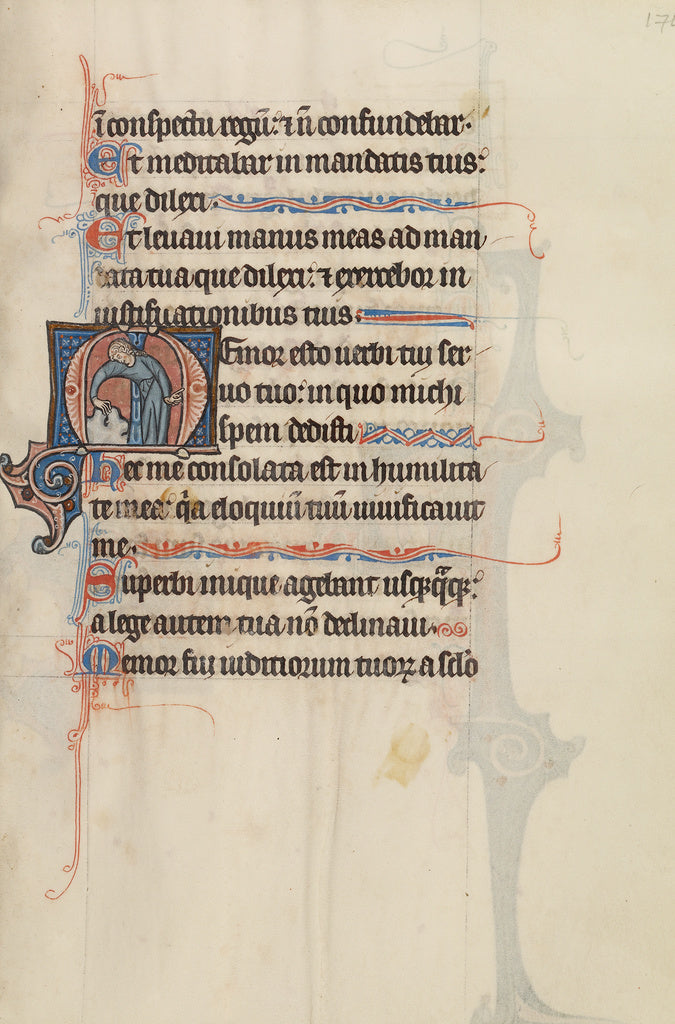 176
ī conspectu regū: ⁊ n̄ confundebar.
Et meditabar in mandatis tuis:
que dilexi.
Et leuaui manus meas ad man
data tua que dilexi: ⁊ exercebor in
iustificationibus tuis.
Memor esto uerbi tui ser
uo tuo: in quo michi
spem dedisti
Hec me consolata est in humilita
te mea: q̄a eloquiū tuū uiuificauit
me.
Superbi inique agebant usq̄q̄q̄:
a lege autem tua nō declinaui.
Memor fui iuditiorum tuoꝝ a sclo